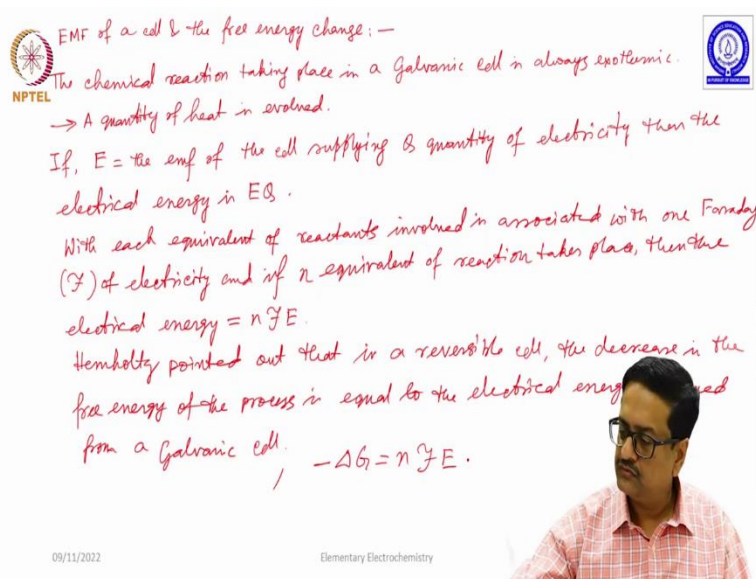 EMF of a cell & the free energy change: —
NPTEL
The chemical reaction taking place in a Galvanic cell is always exothermic.
→ A quantity of heat is evolved.
If, E = the emf of the cell supplying Q quantity of electricity then the
electrical energy is EQ.
With each equivalent of reactants involved is associated with one Faraday
(F) of electricity and if n equivalent of reaction takes place, then the
electrical energy = nFE.
Hemholtz pointed out that in a reversible cell, the decrease in the
free energy of the process is equal to the electrical energ
from a Galvanic cell.
, -ΔG = nFE.
09/11/2022
Elementary Electrochemistry